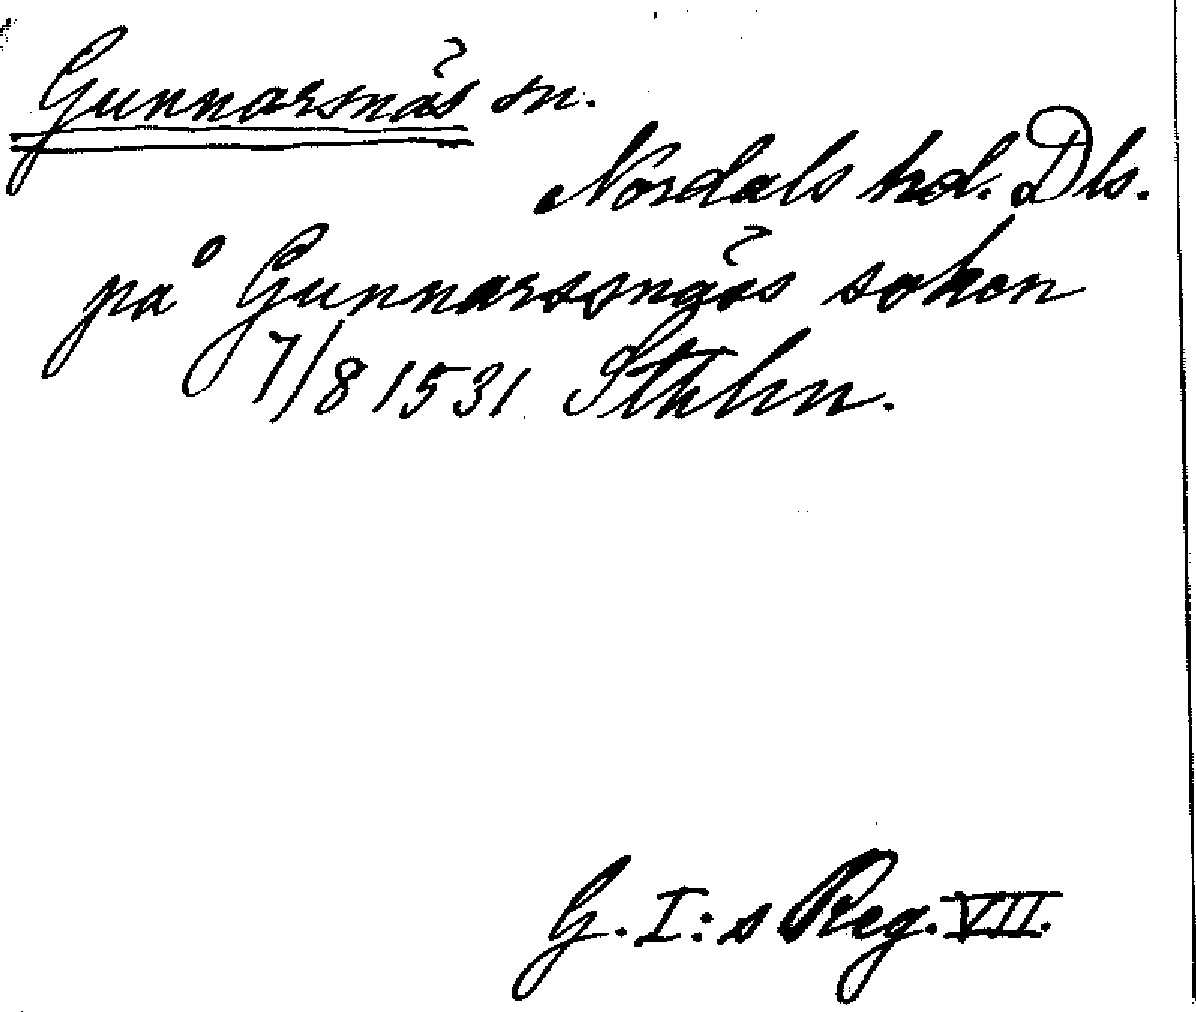 Gunnarsnäs sn.
Nordals hd. Dls.
på Gunnarssnäs soken
7/8 1531 Sthlm.
G. I:s Reg. VII.